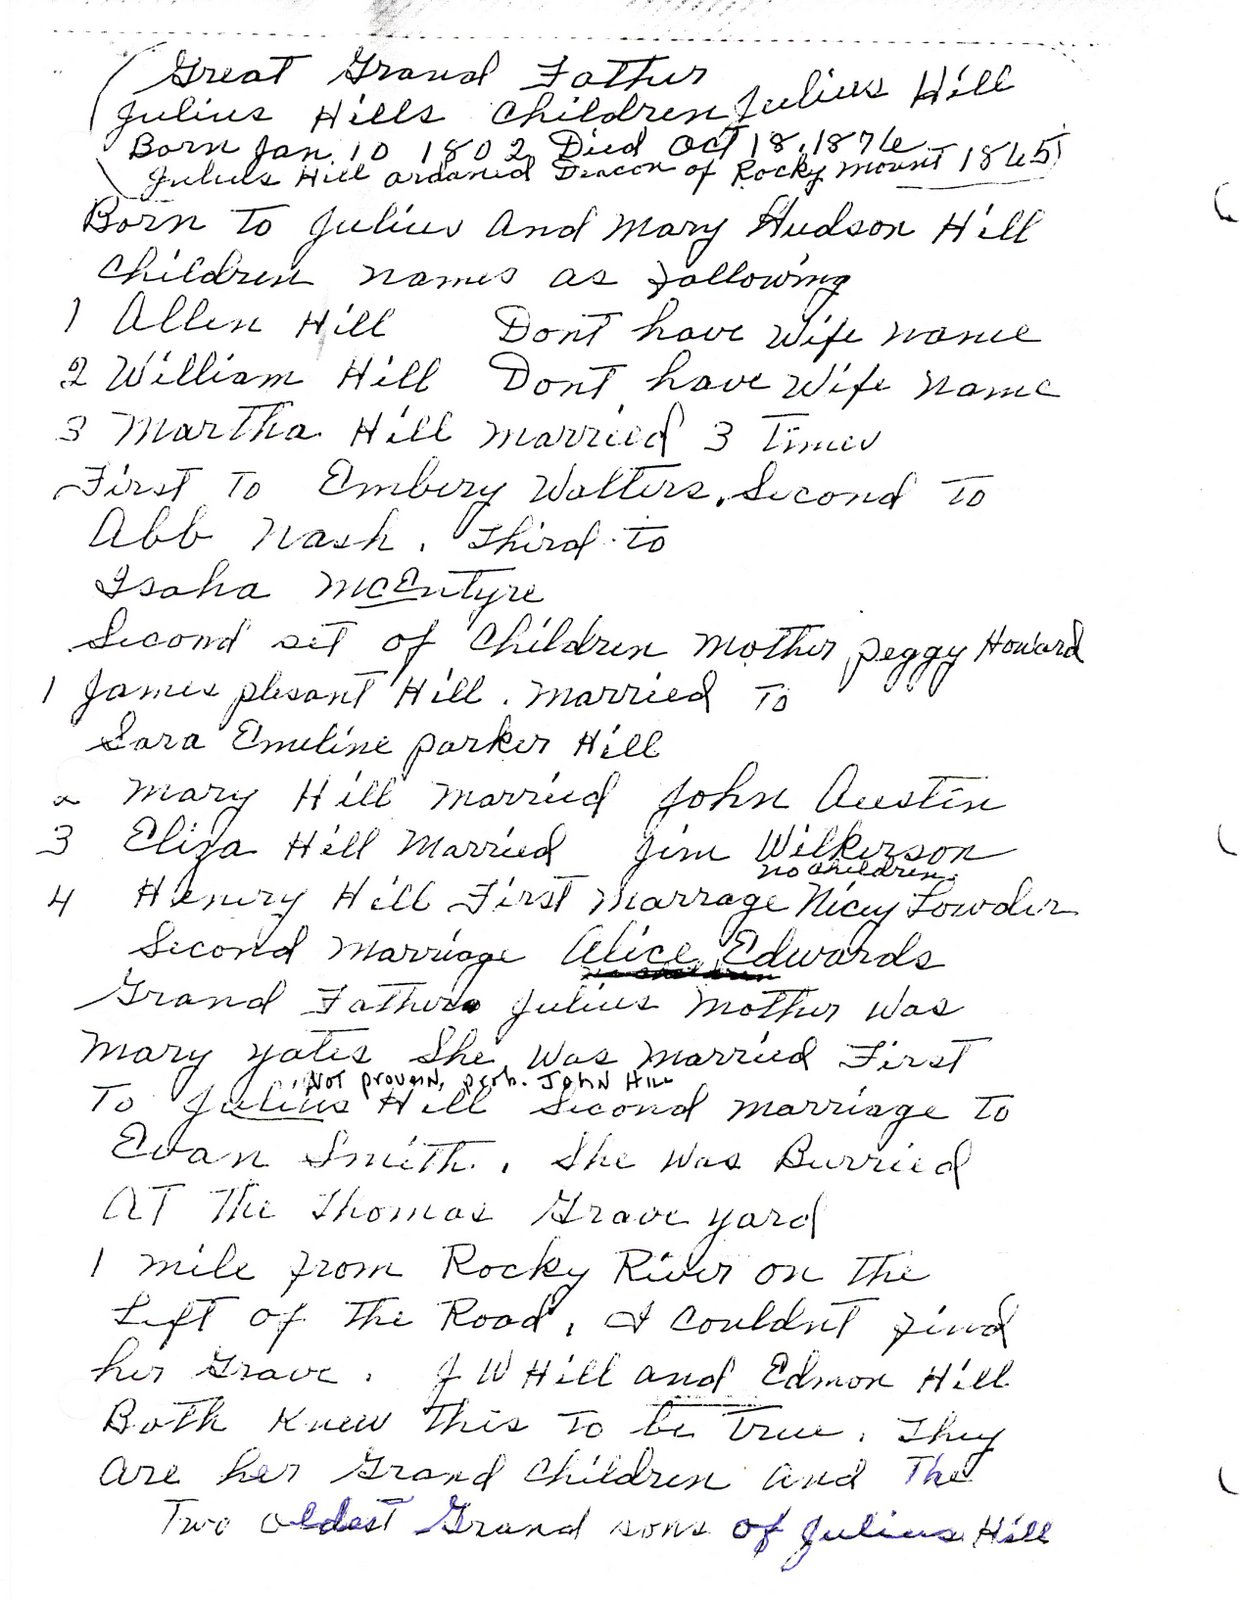 Great Grand Father
Julius Hills Children Julius Hill
Born Jan. 10 1802 Died Oct 18, 1876
Julius Hill ordained Deacon of Rocky Mount 1865
Born To Julius And Mary Hudson Hill
Children names as following
1 Allen Hill Dont have Wife name
2 William Hill Dont have Wife name
3 Martha Hill married 3 Times
First To Embery Walters. Second To
Abb Nash. Third to
Isaha McEntyre
Second set of Children Mother Peggy Howard
1 James plesant Hill. Married To
Sara Emeline parker Hill
2 Mary Hill Married John Austin
3 Eliza Hill Married Jim Wilkerson
no children.
4 Henry Hill First Marrage Nicey Lowder
Second Marriage Alice Edwards
no children
Grand Father Julius Mother Was
Mary yates She Was Married First
Not proven, prob. John Hill
To Julius Hill Second marriage to
Evan Smith. She Was Burried
AT The Thomas Grave yard
1 mile from Rocky River on The
Left of The Road, I Couldnt find
her Grave. J W Hill and Edmon Hill
Both Knew This To be True. They
are her Grand Children and The
Two oldest Grand sons of Julius Hill